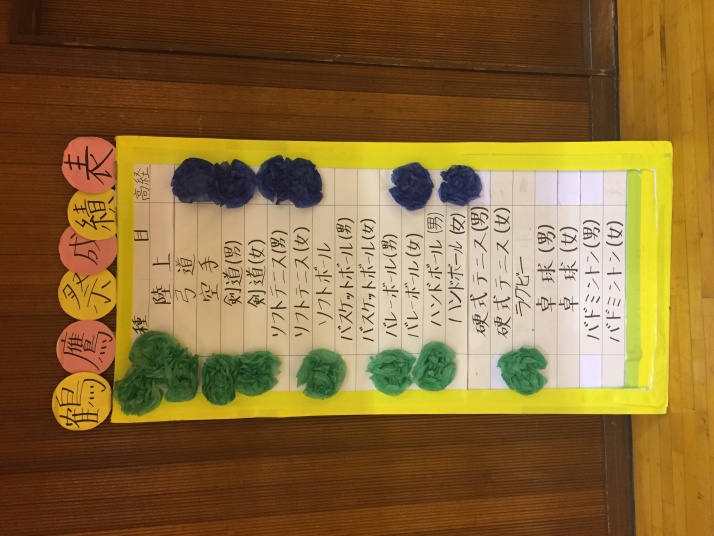 鶴鷹祭成績表
種目 高経
陸上
弓道
空手
剣道(男)
剣道(女)
ソフトテニス(男)
ソフトテニス(女)
ソフトボール
バスケットボール(男)
バスケットボール(女)
バレーボール(男)
バレーボール(女)
ハンドボール(男)
ハンドボール(女)
硬式テニス(男)
硬式テニス(女)
ラグビー
卓球(男)
卓球(女)
バドミントン(男)
バドミントン(女)